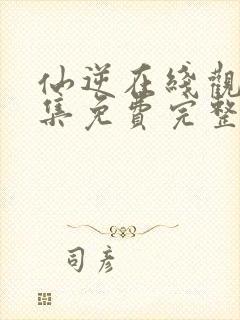 仙逆在线觀
集免費完整
司彦